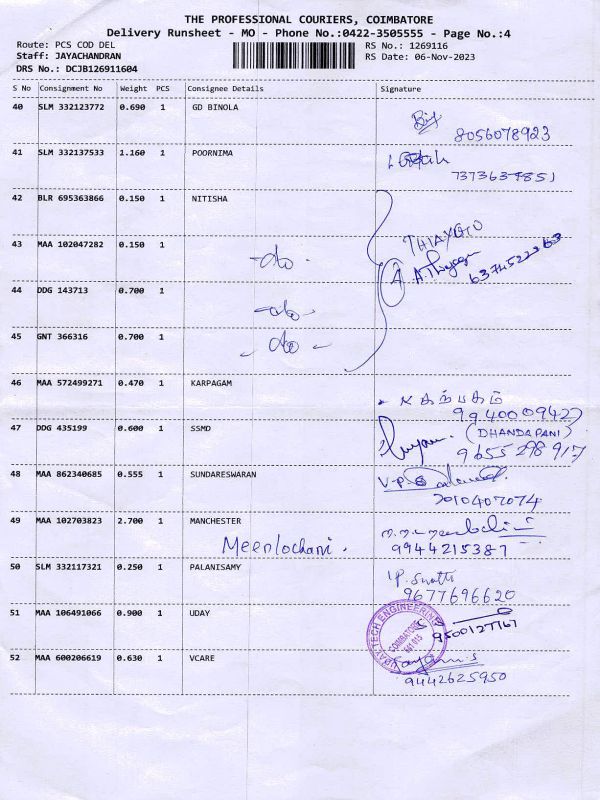 THE PROFESSIONAL COURIERS, COIMBATORE
Delivery Runsheet - MO - Phone No.:0422-3505555 - Page No.:4
Route: PCS COD DEL
RS No.: 1269116
Staff: JAYACHANDRAN
RS Date: 06-Nov-2023
DRS No.: DCJB126911604
S No Consignment No Weight PCS Consignee Details Signature
40 SLM 332123772 0.690 1 GD BINOLA
8056078923
41 SLM 332137533 1.160 1 POORNIMA
7373637851
42 BLR 695363866 0.150 1 NITISHA
THIAYGO
43 MAA 102047282 0.150 1
-do-
A. Thiyagu
6374522263
44 DDG 143713 0.700 1
-do-
45 GNT 366316 0.700 1
- do -
46 MAA 572499271 0.470 1 KARPAGAM
கற்பகம்
9940009427
47 DDG 435199 0.600 1 SSMD
(DHANDAPANI)
9655298917
48 MAA 862340685 0.555 1 SUNDARESWARAN
V-P
7010407074
49 MAA 102703823 2.700 1 MANCHESTER
Meenlochani.
9944215387
50 SLM 332117321 0.250 1 PALANISAMY
9677696620
51 MAA 106491066 0.900 1 UDAY
9500127767
UDAY TECH ENGINEERING
COIMBATORE
641 015
52 MAA 600206619 0.630 1 VCARE
9442625950